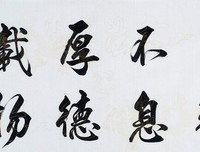 不息
厚德
載物